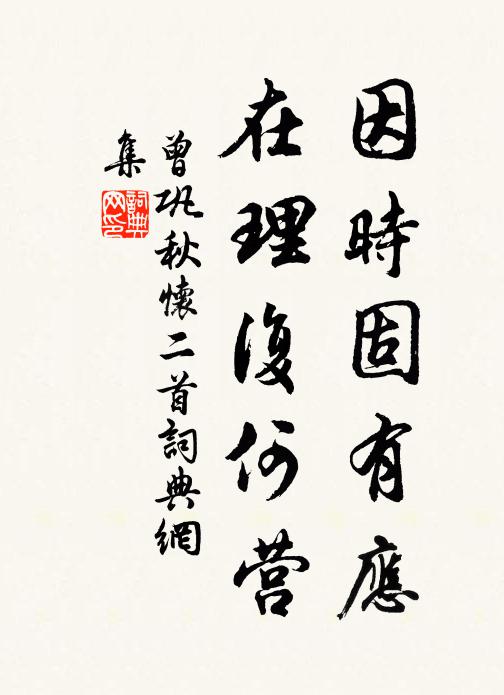 因時固有應
在理復何营
曾巩秋懷二首詞典網
集
詞典网印